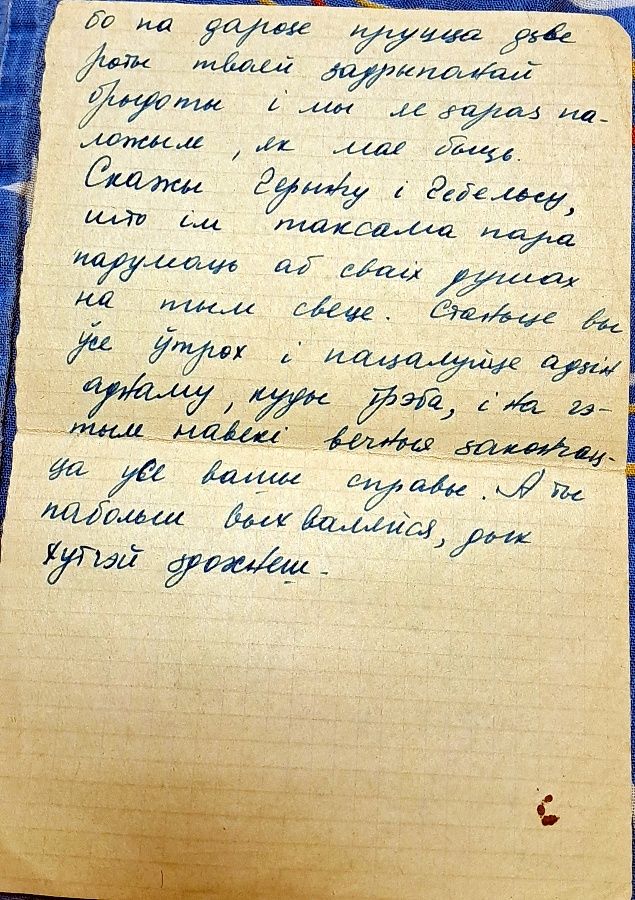 бо па дарозе пруцца дзве
роты тваей задрыпанай
брыдоты і мы іх зараз па-
ложым, як мае быць.
Скажы Герынгу і Гебельсу,
што ім таксама пара
падумаць аб сваіх душах
на тым свеце. Станьце вы
ўсе ўтрох і пацалуйце адзін
аднаму, куды трэба, і на гэ-
тым навекі вечныя закончац-
ца усе вашы справы. А ты
пабольш выхваляйся, дык
хутчэй здохнеш.